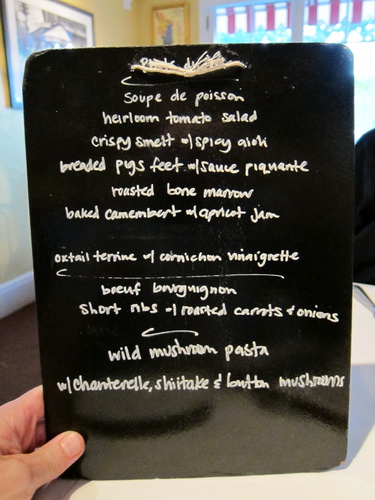 soupe de poisson
heirloom tomato salad
crispy smelt w/spicy aioli
breaded pygs feet w/sauce piquante
roasted bone marrow
baked camembert w/apricot jam
oxtail terrine w/ cornichon vinaigrette
boeuf bourguignon
short ribs w/ roasted carrots & onions
wild mushroom pasta
w/chanterelle, shiitake & button mushrooms